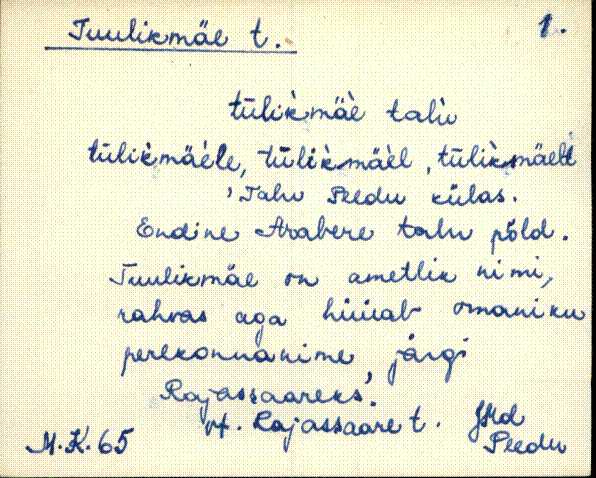 Tuulikmäe t. 1.
tūlik̀mäè talù
tūlik̀mäèle, tūlik̀mäèl, tūlik̀mäelt
Talu Peedu külas.
Endine Arabere talu põld.
Tuulikmäe on ametlik nimi,
rahvas aga hüüab omaniku
perekonnanime järgi
Rajassaareks.
vt. Rajassaare t.
M.K. 65 Peedu